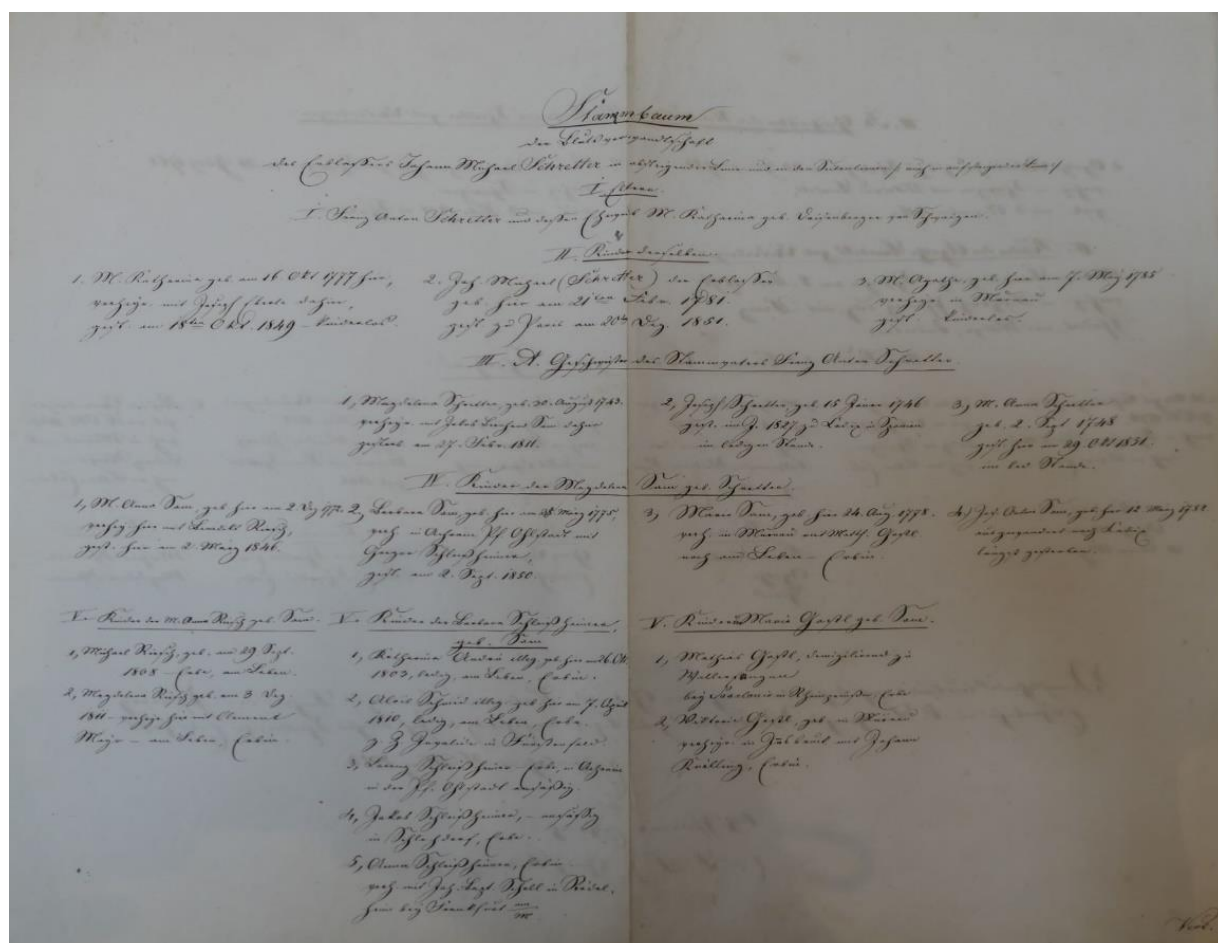 Stammbaum
der Blutsverwandtschaft
des Erblassers Johann Michael Schretter in absteigender Linie und in der Seitenlinie / auch in aufsteigender Linie /
I. Eltern.
I. Franz Anton Schretter und dessen Ehegattin M. Katharina geb. Daisenberger von Schwaigen.
II. Kinder derselben.
1. M. Katharina geb. am 16. Okt 1777 hier,
verehel. mit Joseph Eberle dahier,
gest. am 18ten Okt. 1849 – kinderlos.
2. Joh. Michael (Schretter) der Erblasser
geb. hier am 21ten Febr. 1781.
gest. zu Paris am 20ten Dez. 1851.
3. M. Agatha, geb. hier am 7. May 1785
verehel. in Murnau
gest. kinderlos.
III. A. Geschwister des Stammvaters Franz Anton Schretter.
1, Magdalena Schretter, geb. 30. August 1743.
verehel. mit Jakob Sam dahier
gestorb. am 27. Febr. 1811.
2, Joseph Schretter, geb. 15 Jäner 1746
gest. im J. 1827 zu Cadix in Spanien
im ledigen Stande.
3, M. Anna Schretter
geb. 2. Sept 1748
gest. hier am 29. Okt 1831.
im led. Stande.
IV. Kinder der Magdalena Sam geb. Schretter.
1, M. Anna Sam, geb. hier am 2. Dez 1772.
verehel. hier mit
gest. hier am 2. März 1846.
2, Barbara Sam, geb. hier am März 1775,
verh. in Achrain Pf. Ohlstadt mit
Georg Schleißheimer,
gest. am 2. Sept. 1850.
3, Maria Sam, geb. hier 24. Aug. 1778.
verh. in Murnau mit Gastl
noch am Leben – Erbin.
4, Jos. Anton Sam, geb. hier 12 März 1782
ausgewandert nach Cadix
längst gestorben.
V. Kinder der M. Anna geb. Sam.
1, Michael geb. am 29 Sept.
1808 – Erbe, am Leben.
2, Magdalena geb. am 3 Dez.
1811 – verehel. hier mit Clement
Mayr – am Leben, Erbin.
V. Kinder der Barbara Schleißheimer,
geb. Sam
1, Katharina illeg. geb. hier am Okt.
1803, ledig, am Leben, Erbin.
2, Alois Schmid illeg. geb. hier am 7. April
1810, ledig, am Leben, Erbe.
z. Z. Invalide in Fürstenfeld.
3, Schleißheimer – Erbe, in Achrain
in der Pf. Ohlstadt ansäßig.
4, Jakob Schleißheimer, – ansäßig
in Schlehdorf, Erbe.
5, Anna Schleißheimer, Erbin
verh. mit Joh. Bapt. Schell in Rödel-
heim bey Frankfurt am/M.
V. Kinder der Maria Gastl geb. Sam.
1, Mathias Gastl, domizilirend zu
Wallerfangen
bey Saarlouis in Rheinpreußen, Erbe
2, Viktoria Gastl, geb. in Murnau
verehel. in Insbruck mit Johann
Erbin.